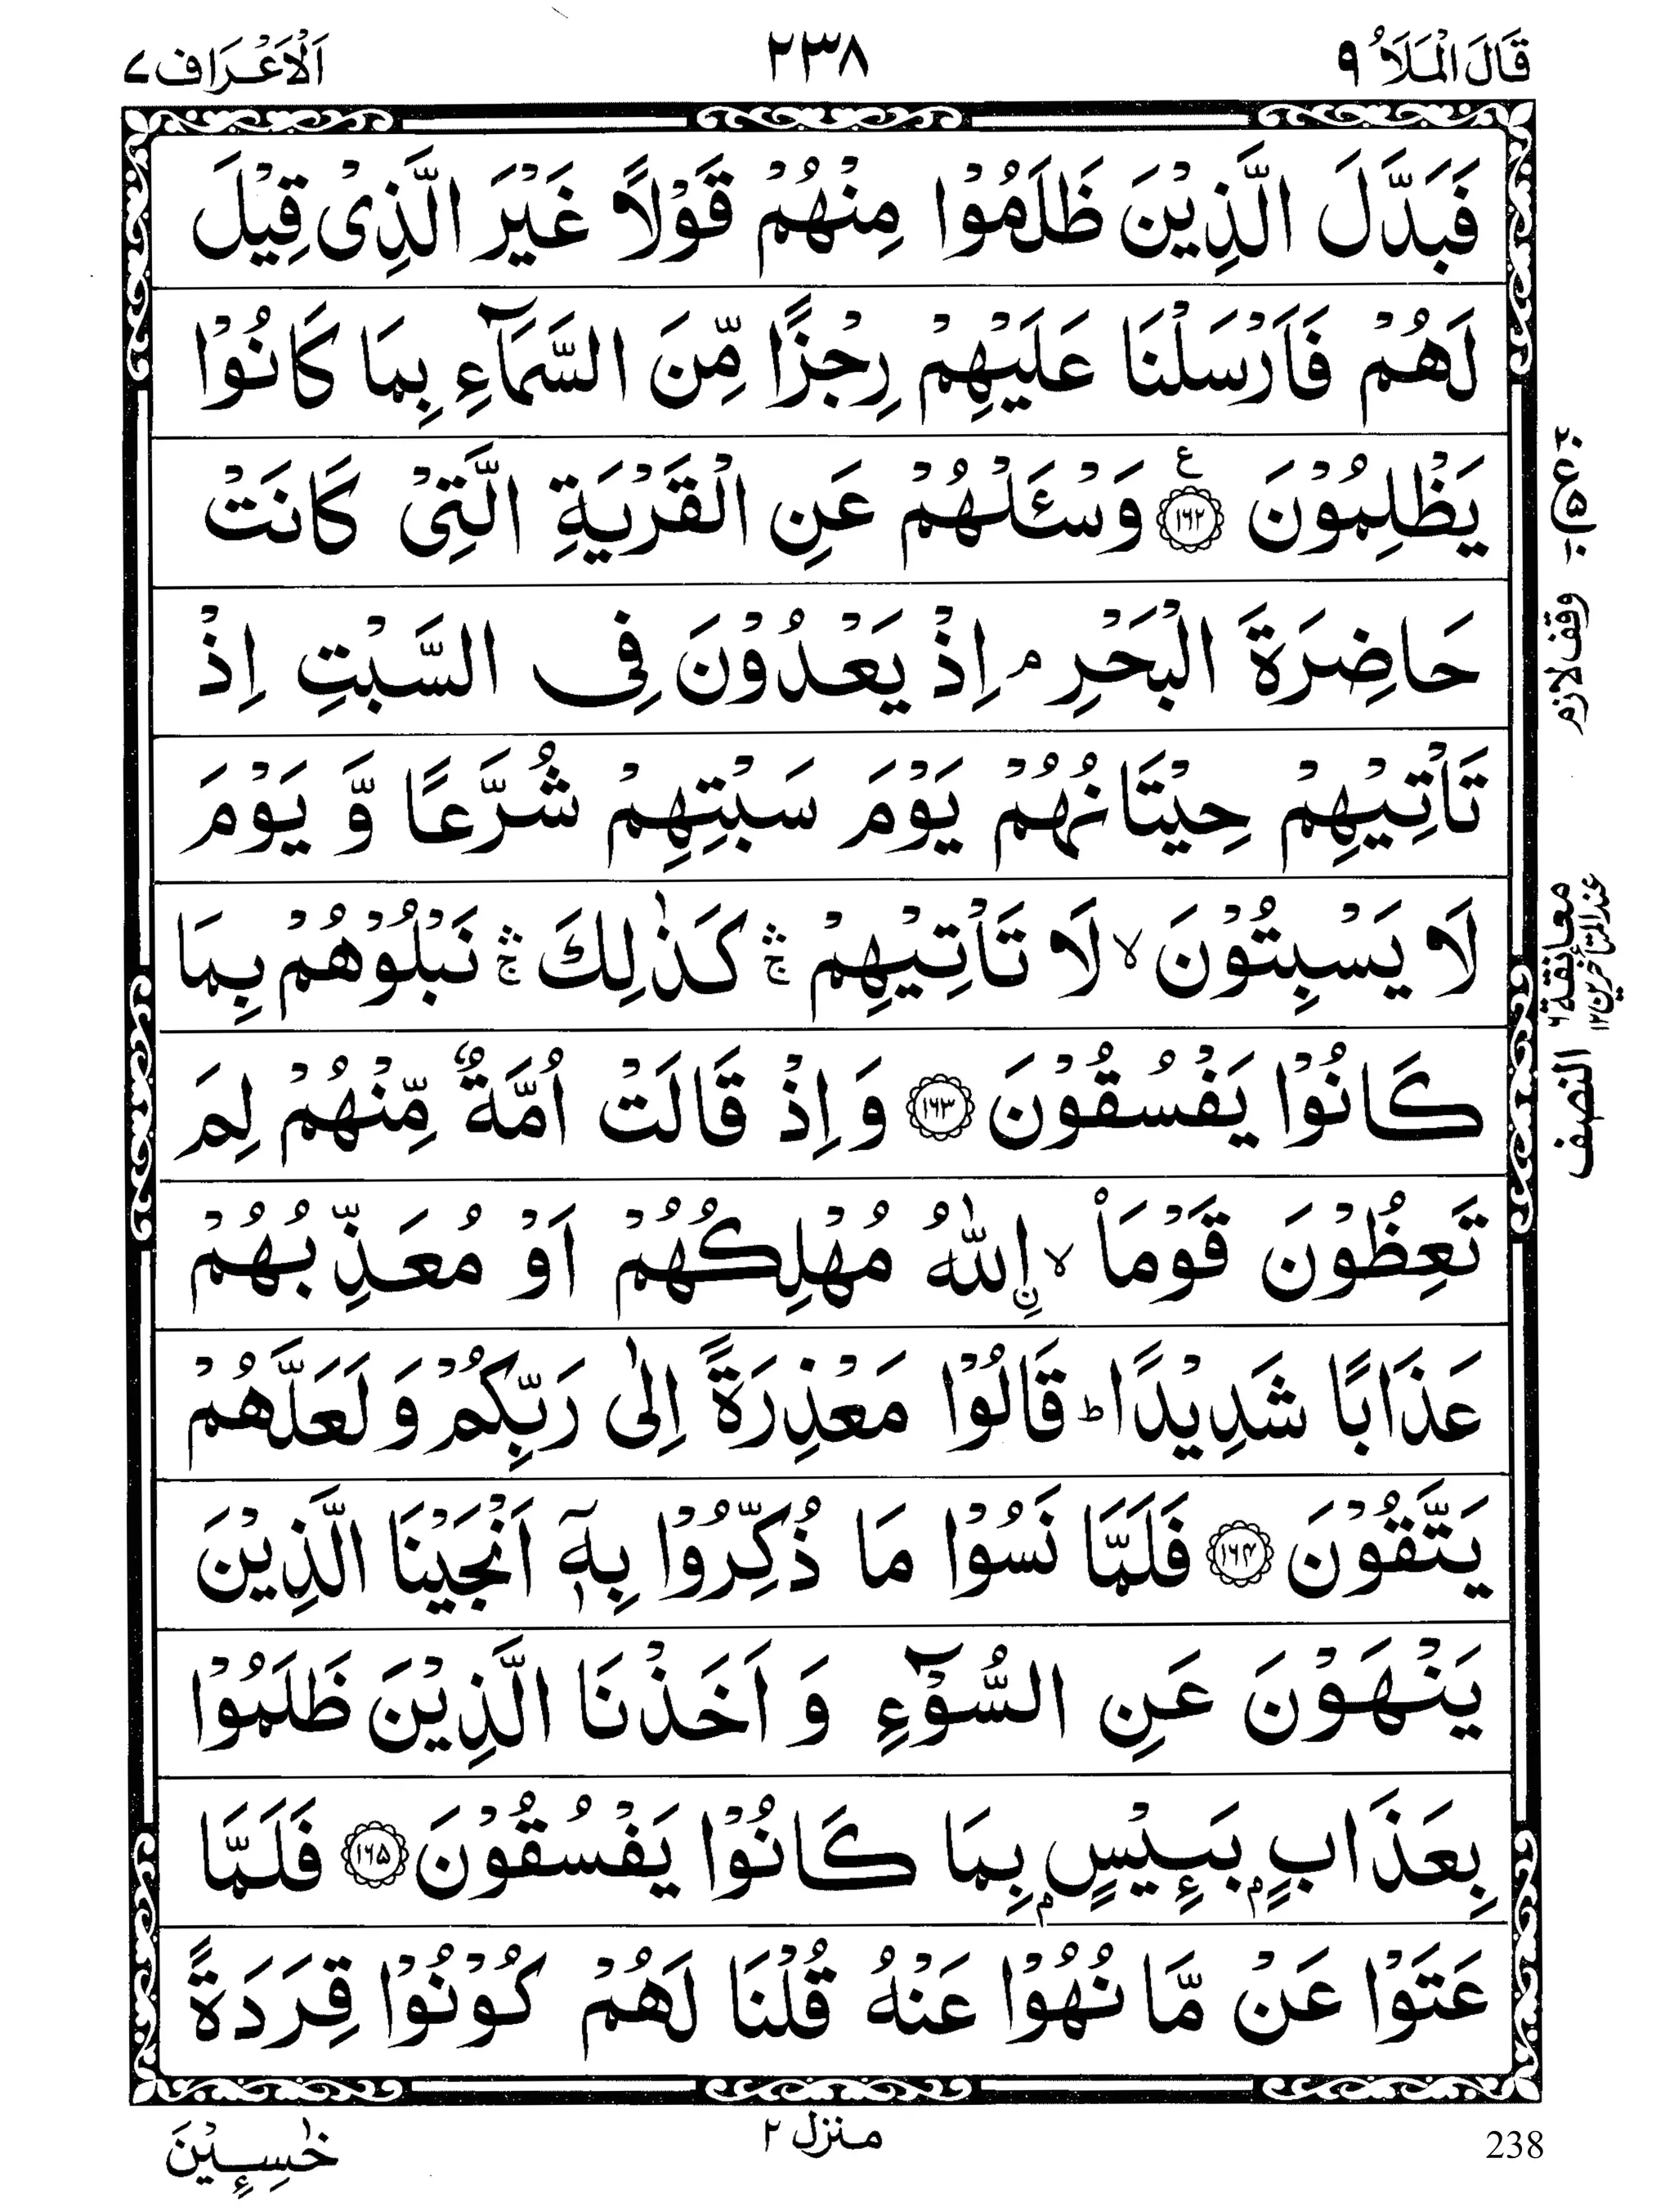 قَالَ الْمَلَاُ ٩
٢٣٨
اَلْاَعْرَاف ٧
فَبَدَّلَ الَّذِيْنَ ظَلَمُوْا مِنْهُمْ قَوْلًا غَيْرَ الَّذِىْ قِيْلَ
لَهُمْ فَاَرْسَلْنَا عَلَيْهِمْ رِجْزًا مِّنَ السَّمَآءِ بِمَا كَانُوْا
يَظْلِمُوْنَ ۧ ﴿۱۶۲﴾ وَسْـَٔلْهُمْ عَنِ الْقَرْيَةِ الَّتِىْ كَانَتْ
حَاضِرَةَ الْبَحْرِ ۘ اِذْ يَعْدُوْنَ فِى السَّبْتِ اِذْ
تَاْتِيْهِمْ حِيْتَانُهُمْ يَوْمَ سَبْتِهِمْ شُرَّعًا وَّ يَوْمَ
لَا يَسْبِتُوْنَ ۙ لَا تَاْتِيْهِمْ ۛۚ كَذٰلِكَ ۛۚ نَبْلُوْهُمْ بِمَا
كَانُوْا يَفْسُقُوْنَ ﴿۱۶۳﴾ وَ اِذْ قَالَتْ اُمَّةٌ مِّنْهُمْ لِمَ
تَعِظُوْنَ قَوْمَاۨ ۙ اللّٰهُ مُهْلِكُهُمْ اَوْ مُعَذِّبُهُمْ
عَذَابًا شَدِيْدًا ؕ قَالُوْا مَعْذِرَةً اِلٰى رَبِّكُمْ وَ لَعَلَّهُمْ
يَتَّقُوْنَ ﴿۱۶۴﴾ فَلَمَّا نَسُوْا مَا ذُكِّرُوْا بِهٖۤ اَنْجَيْنَا الَّذِيْنَ
يَنْهَوْنَ عَنِ السُّوْٓءِ وَ اَخَذْنَا الَّذِيْنَ ظَلَمُوْا
بِعَذَابٍۭ بَـِٕيْسٍۭ بِمَا كَانُوْا يَفْسُقُوْنَ ﴿۱۶۵﴾ فَلَمَّا
عَتَوْا عَنْ مَّا نُهُوْا عَنْهُ قُلْنَا لَهُمْ كُوْنُوْا قِرَدَةً
وقف لازم
معانقة ٦
عند المتأخرين ١٢
النصف
منزل ٢
خٰسِـِٕيْنَ
238